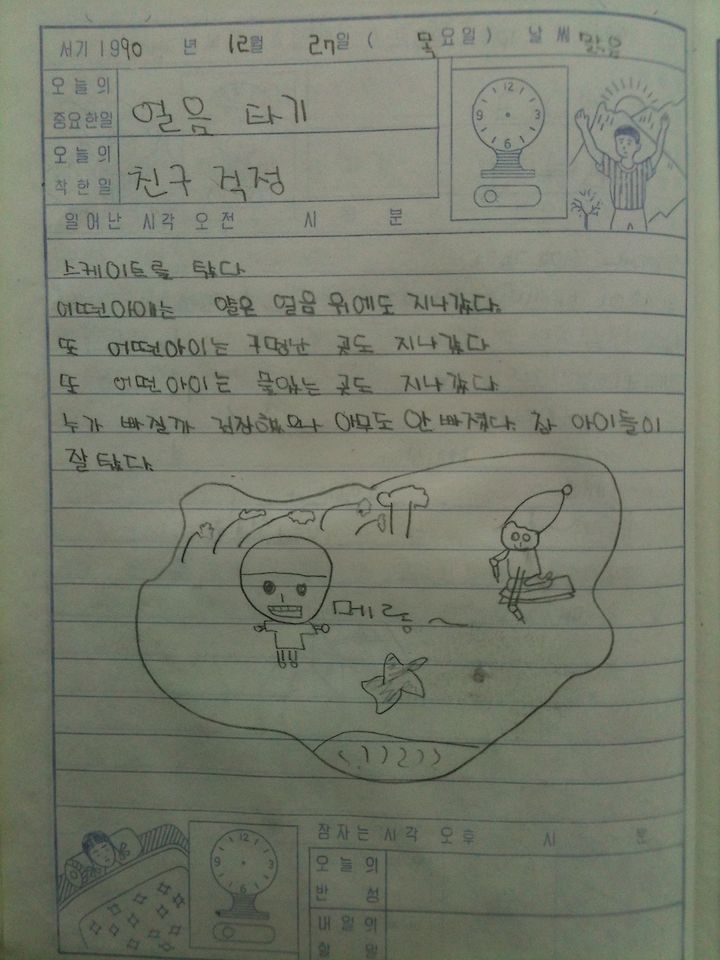 서기 1990 년 12월 27일 ( 목요일 ) 날씨 맑음
오늘의 중요한일 얼음 타기
오늘의 착한일 친구 걱정
12
3
6
9
일어난 시각 오전 시 분
스케이트를 탔다
어떤아이는 얇은 얼음 위에도 지나갔다.
또 어떤아이는 구멍난 곳도 지나갔다
또 어떤아이는 물있는 곳도 지나갔다.
누가 빠질까 걱정했으나 아무도 안 빠졌다. 참 아이들이
잘 탔다.
메롱~
12
3
6
9
잠자는 시각 오후 시 분
오늘의 반성
내일의 할일